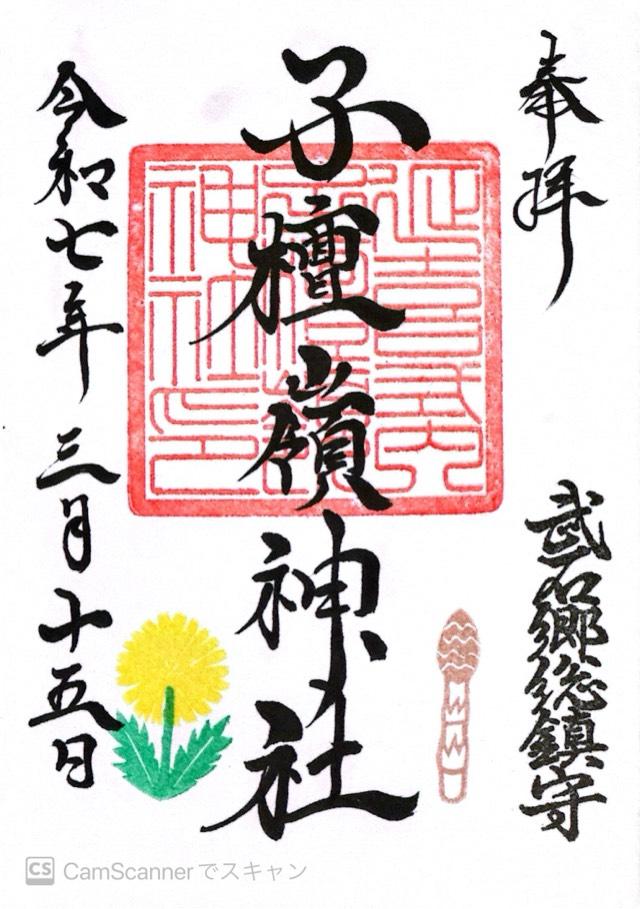 奉拝
武石郷総鎮守
子檀嶺神社
令和七年三月十五日
CS CamScannerでスキャン